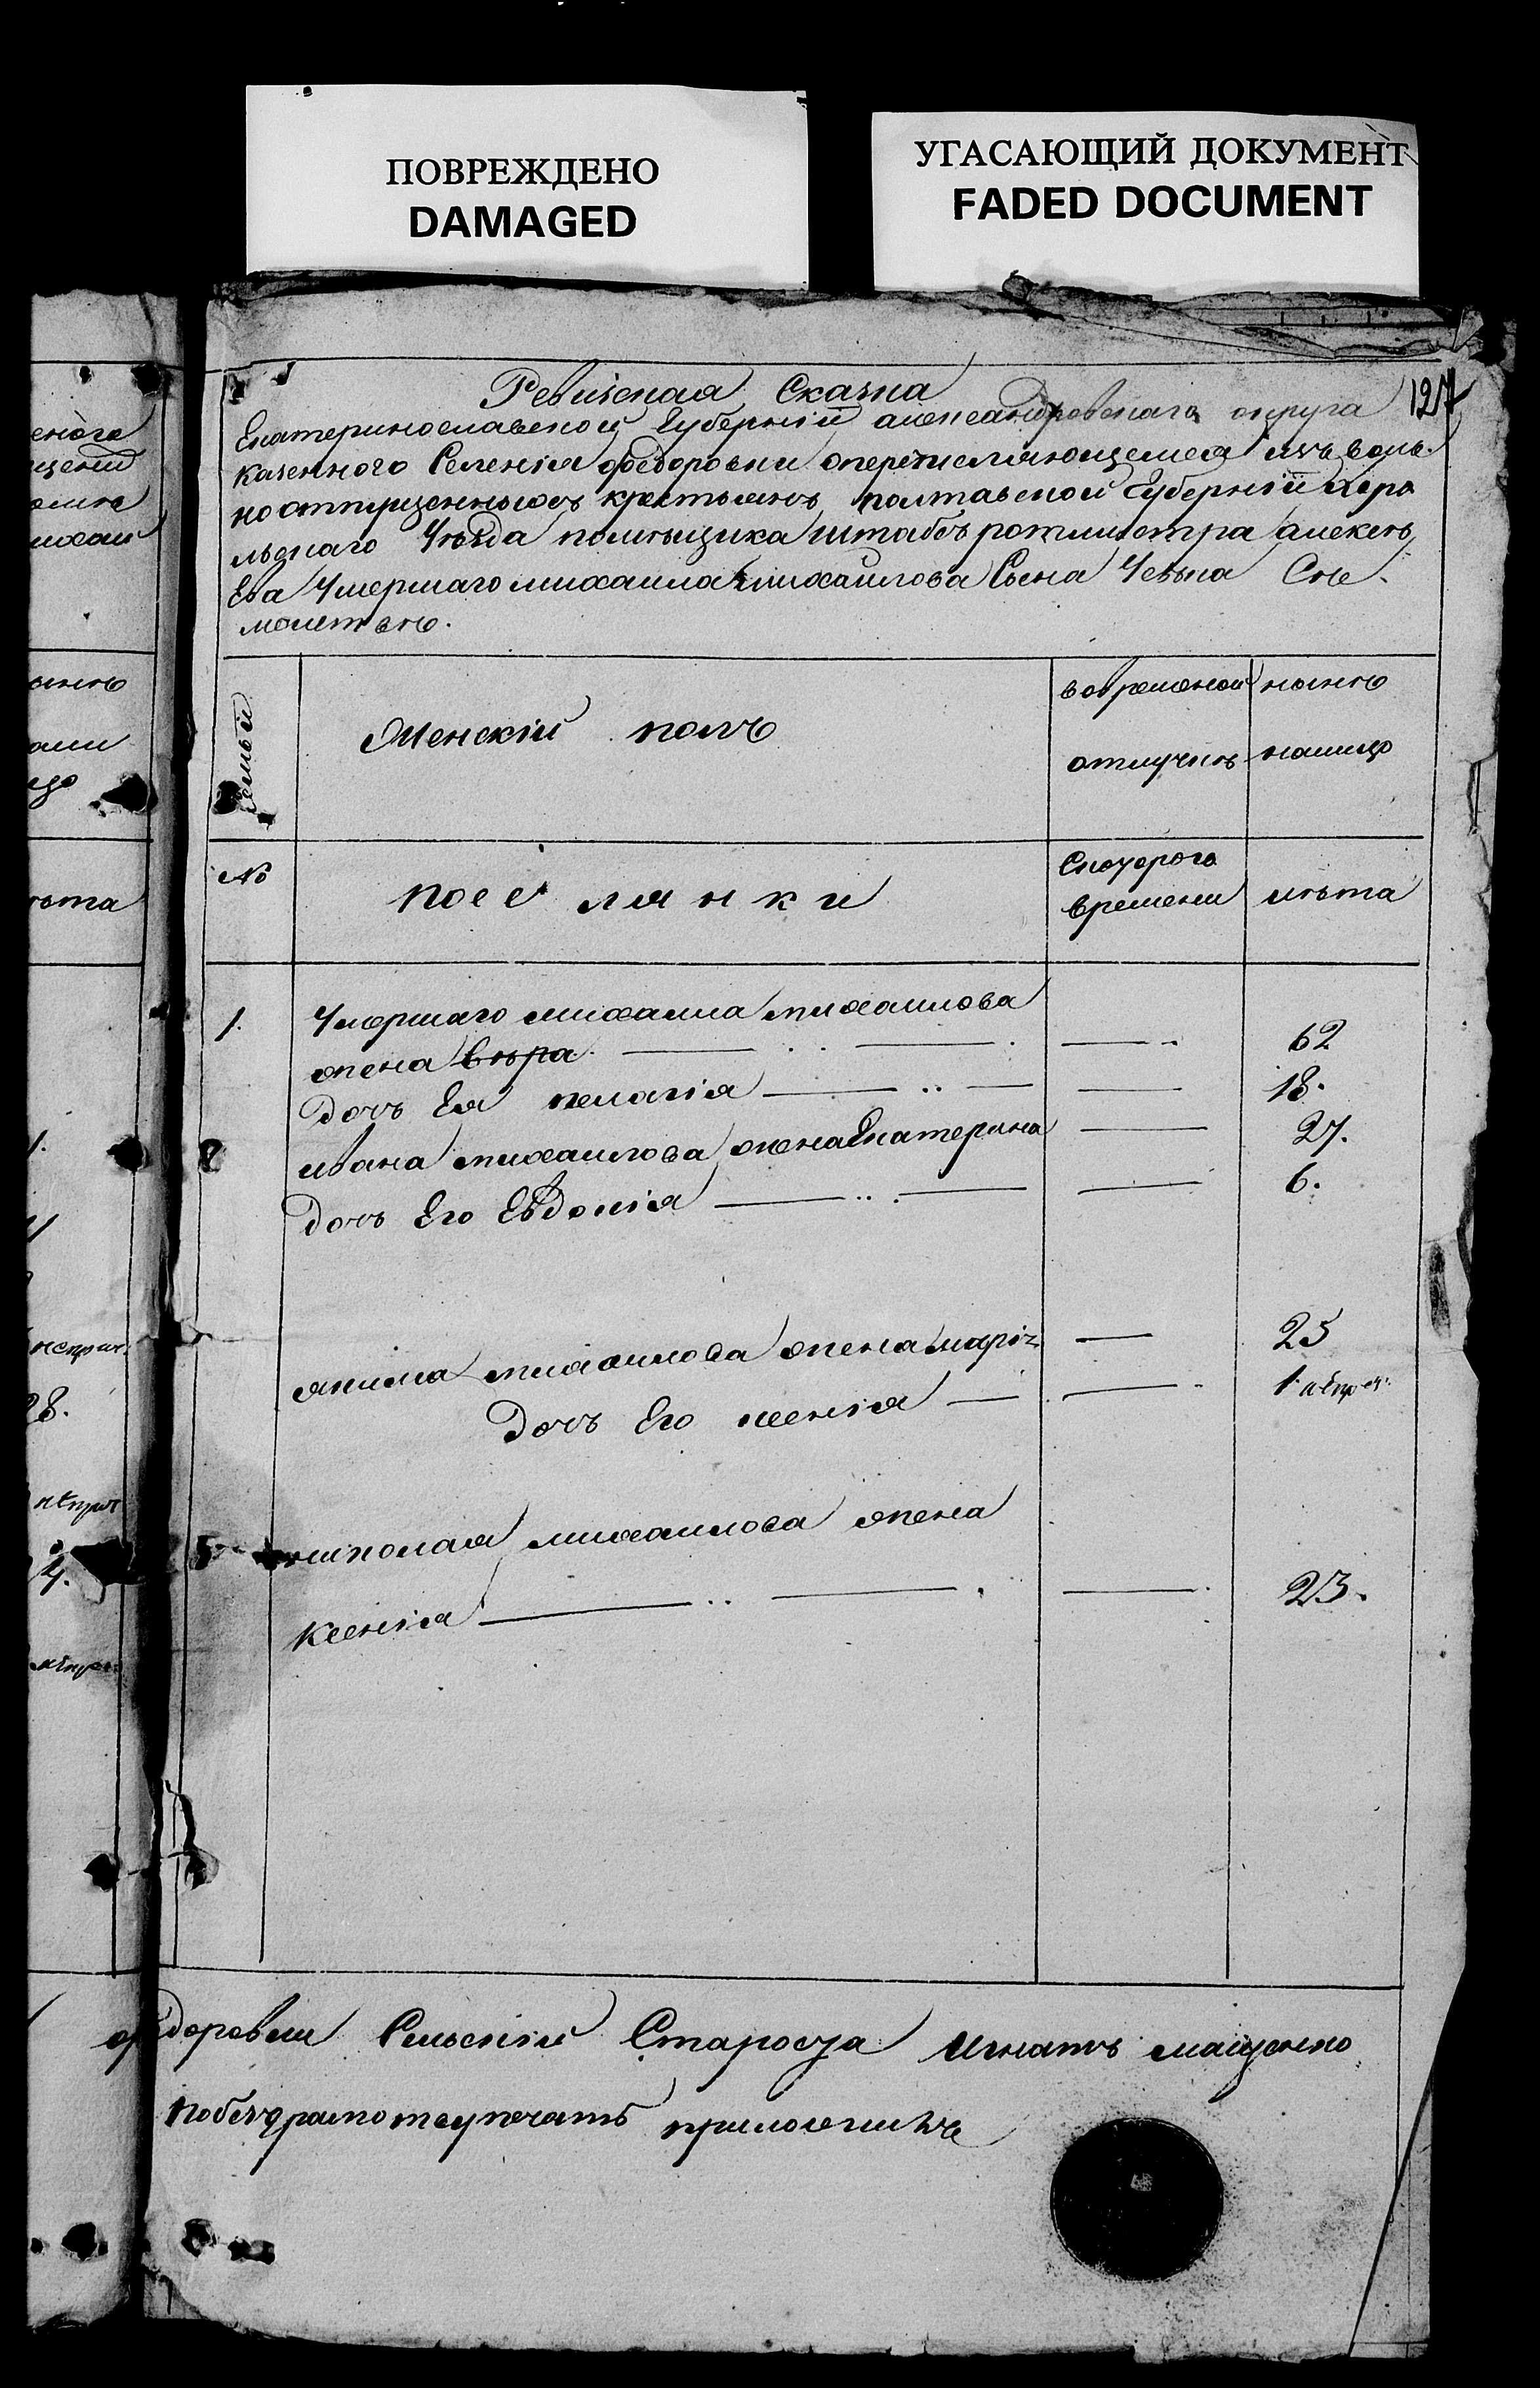 ПОВРЕЖДЕНО
DAMAGED
УГАСАЮЩИЙ ДОКУМЕНТ
FADED DOCUMENT
Ревизская Сказка
127
Екатеринославской Губерніи александровскаго округа
казенного Селенія Федоровки оперечисляющемся изъ воль-
но отпущенныхъ крестьянъ полтавской Губерніи Хоро
льскаго Уѣзда помѣщика штабъ ротмистра алексѣ
Ева Умершаго михаила михайлова Сына Съ Се-
мействѣ.
Семьи
Женскій полъ
вовременой
отлучкѣ
нынѣ
налицо
№
посе лянки
Скоторого
времени
лѣта
1.
Умершаго михаила михаилова
жена Вѣра
62
дочь Ея пелагія
18.
2
ивана михаилова жена Екатерина
27.
дочь Его Евдокія
6.
якима михаилова жена марія
25
дочь Его ксенія
1
5
николая михаилова жена
Ксенія
23.
Федоровки Сельскій Староста Игнатъ мащенко
побезграмотсу печать приложилъ